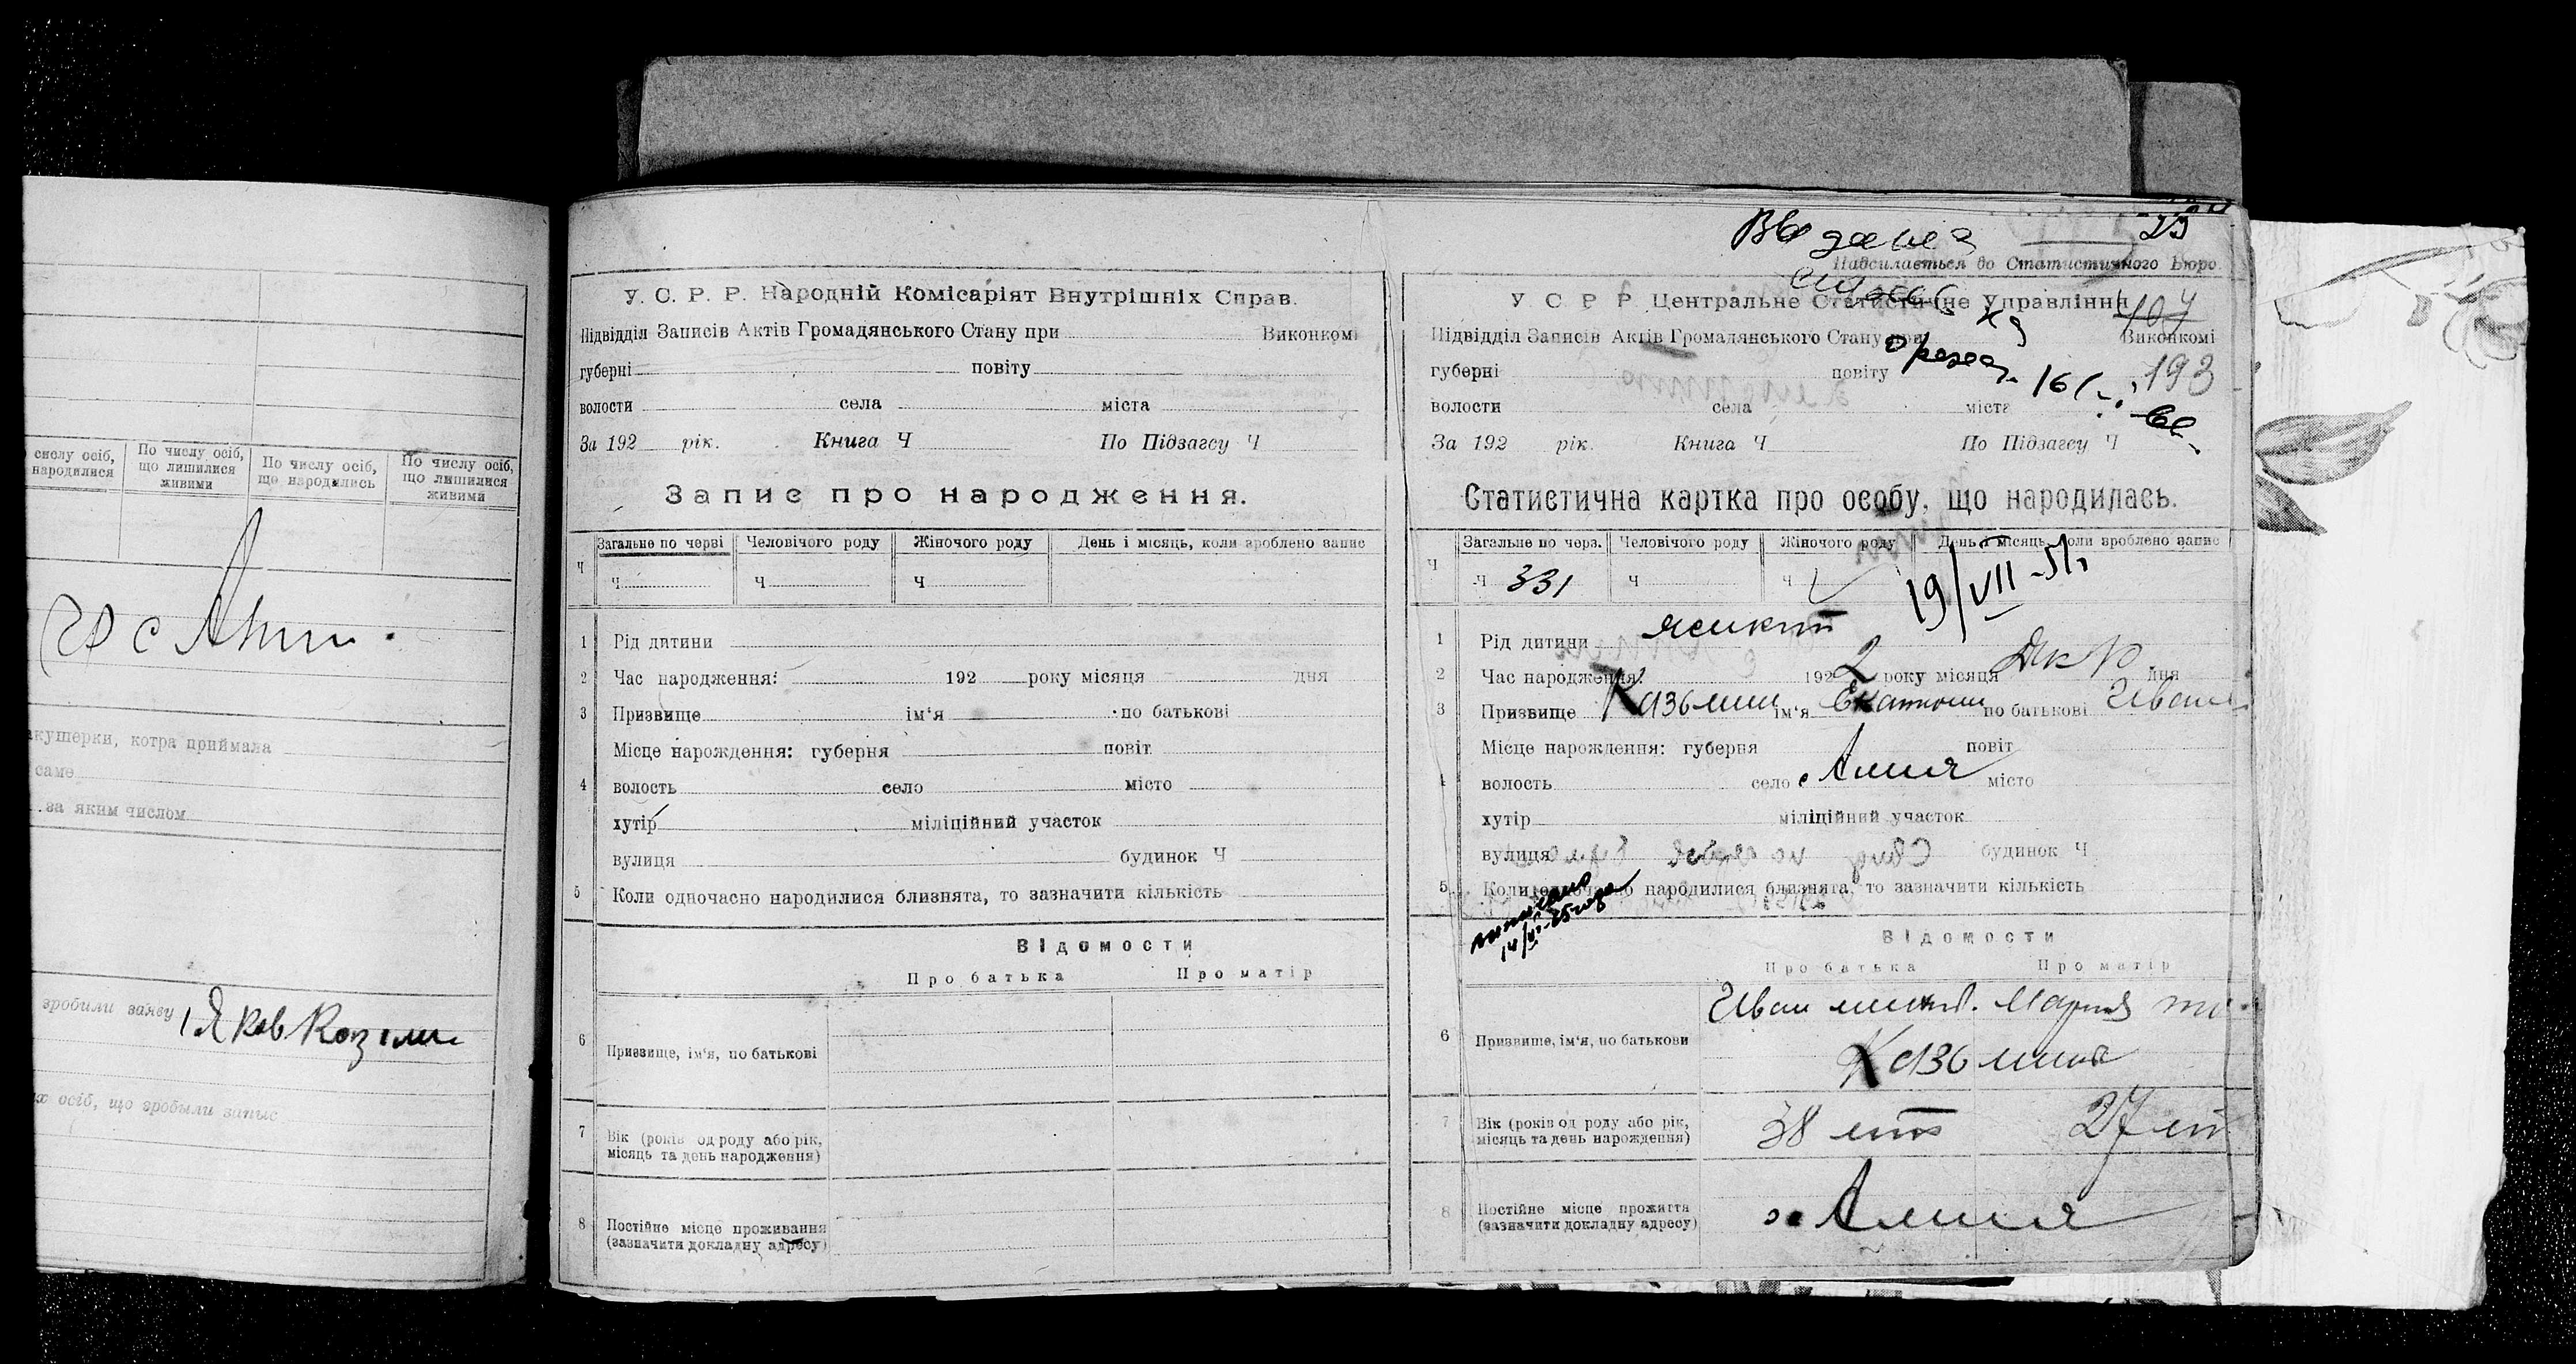 числу осіб, народилися
По числу осіб, що лишилися живими
По числу осіб, що народились
По числу осіб, що лишилися живими
акушерки, котра приймала
саме
за яким числом
зробили заяву
Яков
их осіб, що зробили запис
У. С. Р. Р. Народній Комісаріят Внутрішніх Справ.
Підвідділ Записів Актів Громадянського Стану при Виконкомі
губерні повіту
волости села міста
За 192 рік. Книга Ч По Підзагсу Ч
Запис про народження.
Ч Загальне по черзі Человічого роду Жіночого роду День і місяць, коли зроблено запис
Ч Ч Ч
1 Рід дитини
2 Час народження: 192 року місяця дня
3 Призвище ім'я по батькові
Місце нарождення: губерня повіт
4 волость село місто
хутір міліційний участок
вулиця будинок Ч
5 Коли одночасно народилися близнята, то зазначити кількість
Відомости
Про батька Про матір
6 Призвище, ім'я, по батькові
7 Вік (років од роду або рік, місяць та день народження)
8 Постійне місце проживання (зазначити докладну адресу)
25
Надсилається до Статистичного Бюро.
У С Р Р Центральне Статистичне Управління
404
Підвідділ Записів Актів Громадянського Стану при Виконкомі
губерні повіту
193
волости села міста
За 192 рік. Книга Ч По Підзагсу Ч
Статистична картка про особу, що народилась.
Ч Загальне по черз. Человічого роду Жіночого роду День і місяць, коли зроблено запис
Ч 331 Ч Ч
19/VII-51г
1 Рід дитини
2 Час народження: 192 2 року місяця дня
3 Призвище ім'я по батькові Иван
Місце нарождення: губерня повіт
4 волость село місто
хутір міліційний участок
вулиця будинок Ч
5 Коли одночасно народилися близнята, то зазначити кількість
Відомости
Про батька Про матір
6 Призвише, ім'я, по батькови Иван Мария
7 Вік (років од роду або рік, місяць та день нарождення) 38 лет 27 лет
8 Постійне місце прожиття (зазначити докладну адресу)